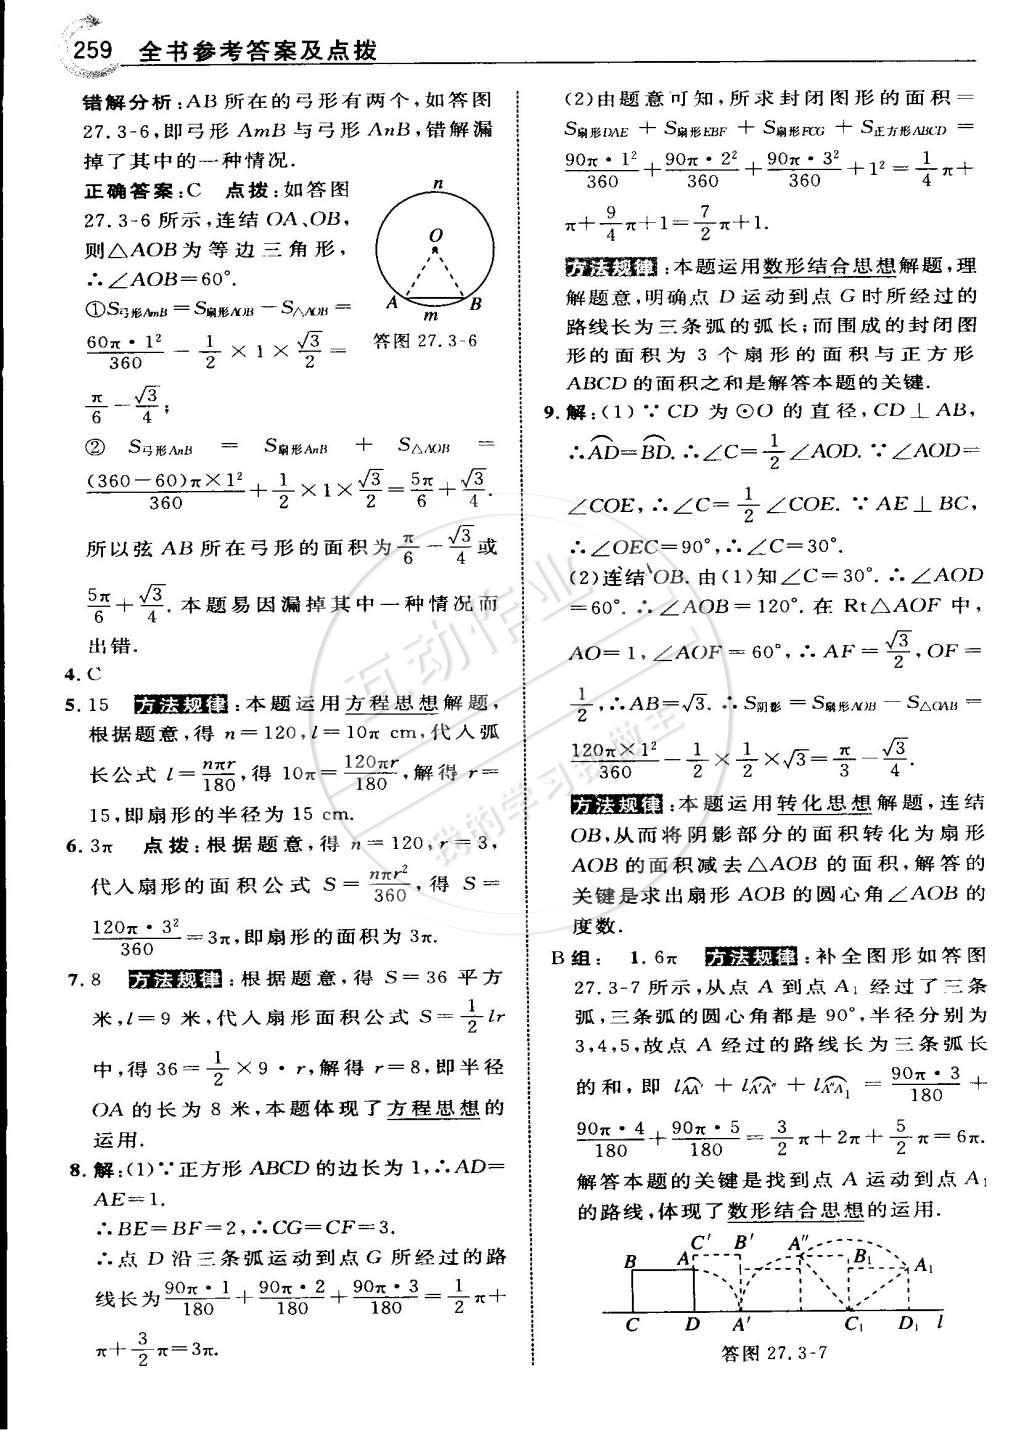 259 全书参考答案及点拨
错解分析:AB 所在的弓形有两个,如答图
27.3-6,即弓形 AmB 与弓形 AnB,错解漏
掉了其中的一种情况.
正确答案:C 点拨:如答图
27.3-6 所示,连结 OA、OB,
则△AOB 为等边三角形,
∴∠AOB=60°.
①S弓形AmB=S扇形AOB-S△AOB=
60π·1²/360-1/2×1×√3/2=
π/6-√3/4;
n
O
A
B
m
答图 27.3-6
② S弓形AnB = S扇形AnB + S△AOB =
(360-60)π×1²/360+1/2×1×√3/2=5π/6+√3/4.
所以弦 AB 所在弓形的面积为π/6-√3/4或
5π/6+√3/4.本题易因漏掉其中一种情况而
出错.
4.C
5.15 方法规律:本题运用方程思想解题,
根据题意,得 n=120,l=10π cm,代入弧
长公式 l=nπr/180,得 10π=120πr/180,解得 r=
15,即扇形的半径为 15 cm.
6.3π 点拨:根据题意,得 n=120,r=3,
代入扇形的面积公式 S=nπr²/360,得 S=
120π·3²/360=3π,即扇形的面积为 3π.
7.8 方法规律:根据题意,得 S=36 平方
米,l=9 米,代入扇形面积公式 S=1/2lr
中,得 36=1/2×9·r,解得 r=8,即半径
OA 的长为 8 米,本题体现了方程思想的
运用.
8.解:(1)∵正方形 ABCD 的边长为 1,∴AD=
AE=1.
∴BE=BF=2,∴CG=CF=3.
∴点 D 沿三条弧运动到点 G 所经过的路
线长为90π·1/180+90π·2/180+90π·3/180=1/2π+
π+3/2π=3π.
(2)由题意可知,所求封闭图形的面积=
S扇形DAE+S扇形EBF+S扇形FCG+S正方形ABCD=
90π·1²/360+90π·2²/360+90π·3²/360+1²=1/4π+
π+9/4π+1=7/2π+1.
方法规律:本题运用数形结合思想解题,理
解题意,明确点 D 运动到点 G 时所经过的
路线长为三条弧的弧长;而围成的封闭图
形的面积为 3 个扇形的面积与正方形
ABCD 的面积之和是解答本题的关键.
9.解:(1)∵CD 为⊙O 的直径,CD⊥AB,
∴A͡D=B͡D.∴∠C=1/2∠AOD.∵∠AOD=
∠COE,∴∠C=1/2∠COE.∵AE⊥BC,
∴∠OEC=90°,∴∠C=30°.
(2)连结 OB.由(1)知∠C=30°.∴∠AOD
=60°.∴∠AOB=120°.在 Rt△AOF 中,
AO=1,∠AOF=60°,∴AF=√3/2,OF=
1/2,∴AB=√3.∴S阴影=S扇形AOB-S△OAB=
120π×1²/360-1/2×1/2×√3=π/3-√3/4.
方法规律:本题运用转化思想解题,连结
OB,从而将阴影部分的面积转化为扇形
AOB 的面积减去△AOB 的面积,解答的
关键是求出扇形 AOB 的圆心角∠AOB 的
度数.
B 组: 1.6π 方法规律:补全图形如答图
27.3-7 所示,从点 A 到点 A₁ 经过了三条
弧,三条弧的圆心角都是 90°,半径分别为
3,4,5,故点 A 经过的路线长为三条弧长
的和,即 lA͡A′+lA′͡A″+lA″͡A₁=90π·3/180+
90π·4/180+90π·5/180=3/2π+2π+5/2π=6π.
解答本题的关键是找到点 A 运动到点 A₁
的路线,体现了数形结合思想的运用.
C′ B′ A″
B A B₁ A₁
C D A′ C₁ D₁ l
答图 27.3-7
互动作业
我的学习我做主